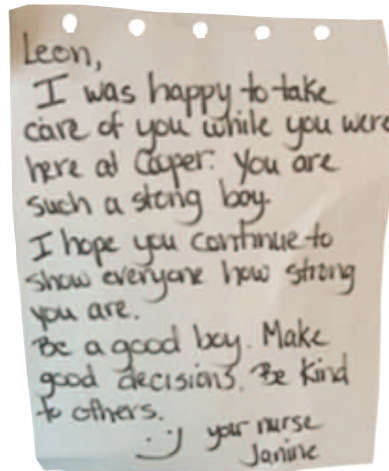 Leon,
I was happy to take
care of you while you were
here at Cooper. You are
such a stong boy.
I hope you continue to
show everyone how strong
you are.
Be a good boy. Make
good decisions. Be Kind
to others.
:-) your nurse
Janine